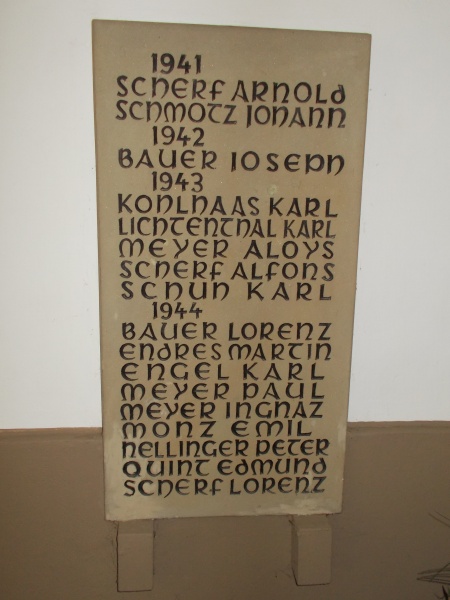 1941
SCHERF ARNOLD
SCHMOTZ JOHANN
1942
BAUER IOSEPH
1943
KOHLHAAS KARL
LICHTENTHAL KARL
MEYER ALOYS
SCHERF ALFONS
SCHUH KARL
1944
BAUER LORENZ
ENDRES MARTIN
ENGEL KARL
MEYER PAUL
MEYER INGNAZ
MONZ EMIL
NELLINGER PETER
QUINT EDMUND
SCHERF LORENZ